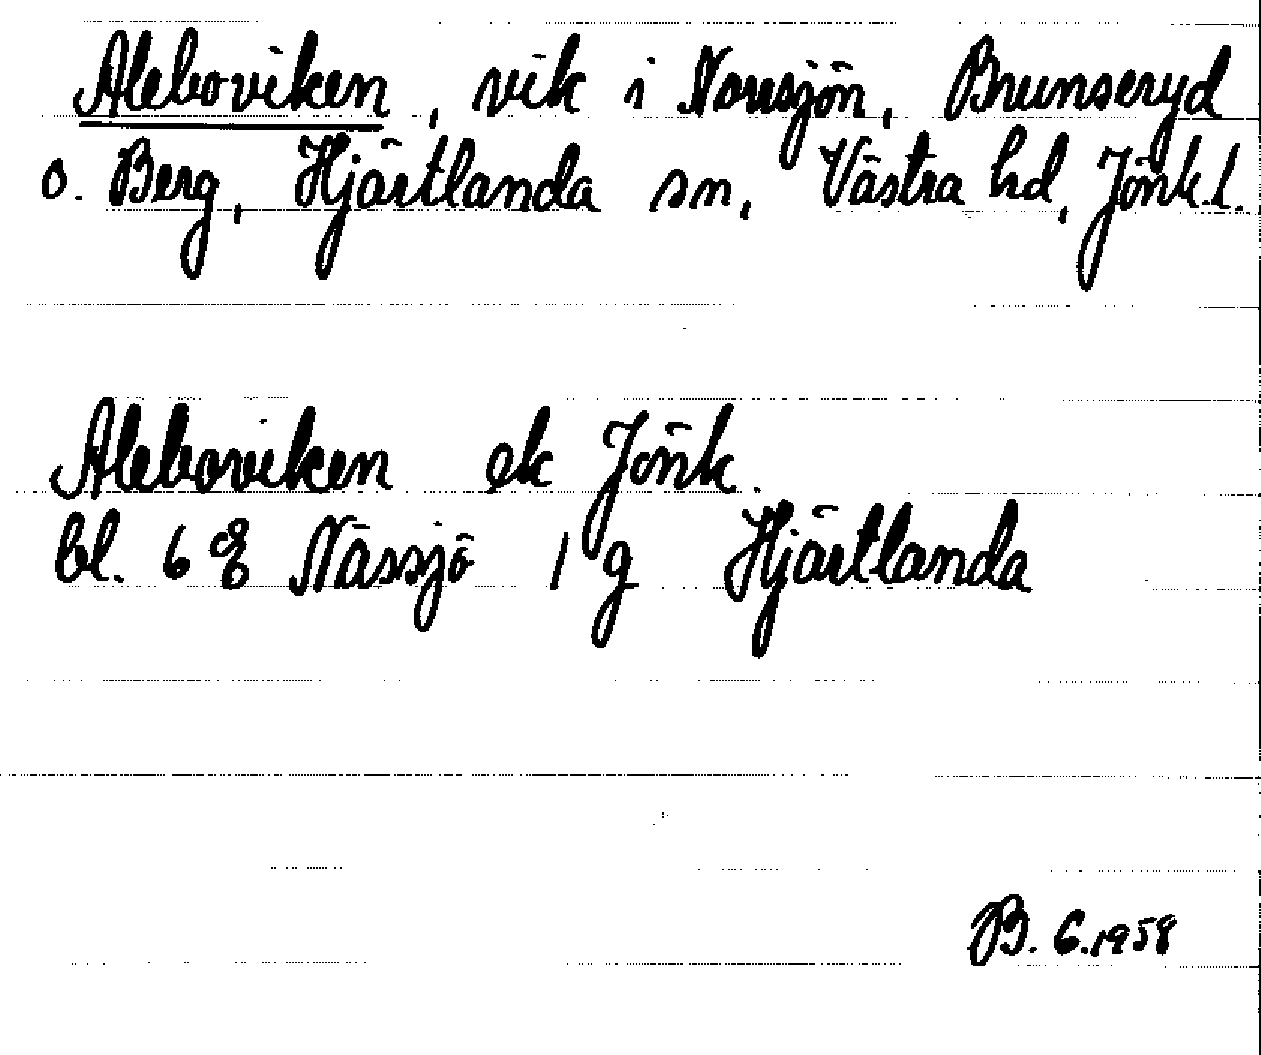 Aleboviken, vik i Norrsjön, Brunseryd
o. Berg, Hjärtlanda sn, Västra hd, Jönk.l.
Aleboviken ek Jönk.
bl. 6 Nässjö 1 g Hjärtlanda
B. G. 1958